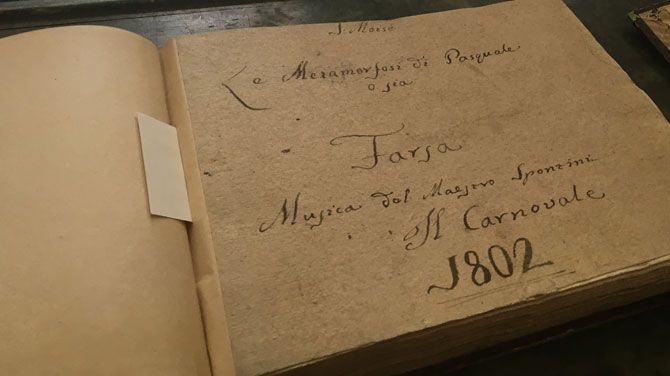 S. Moisè
Le Metamorfosi di Pasquale
o sia
Farsa
Musica dal Maestro Spontini
Il Carnovale
1802